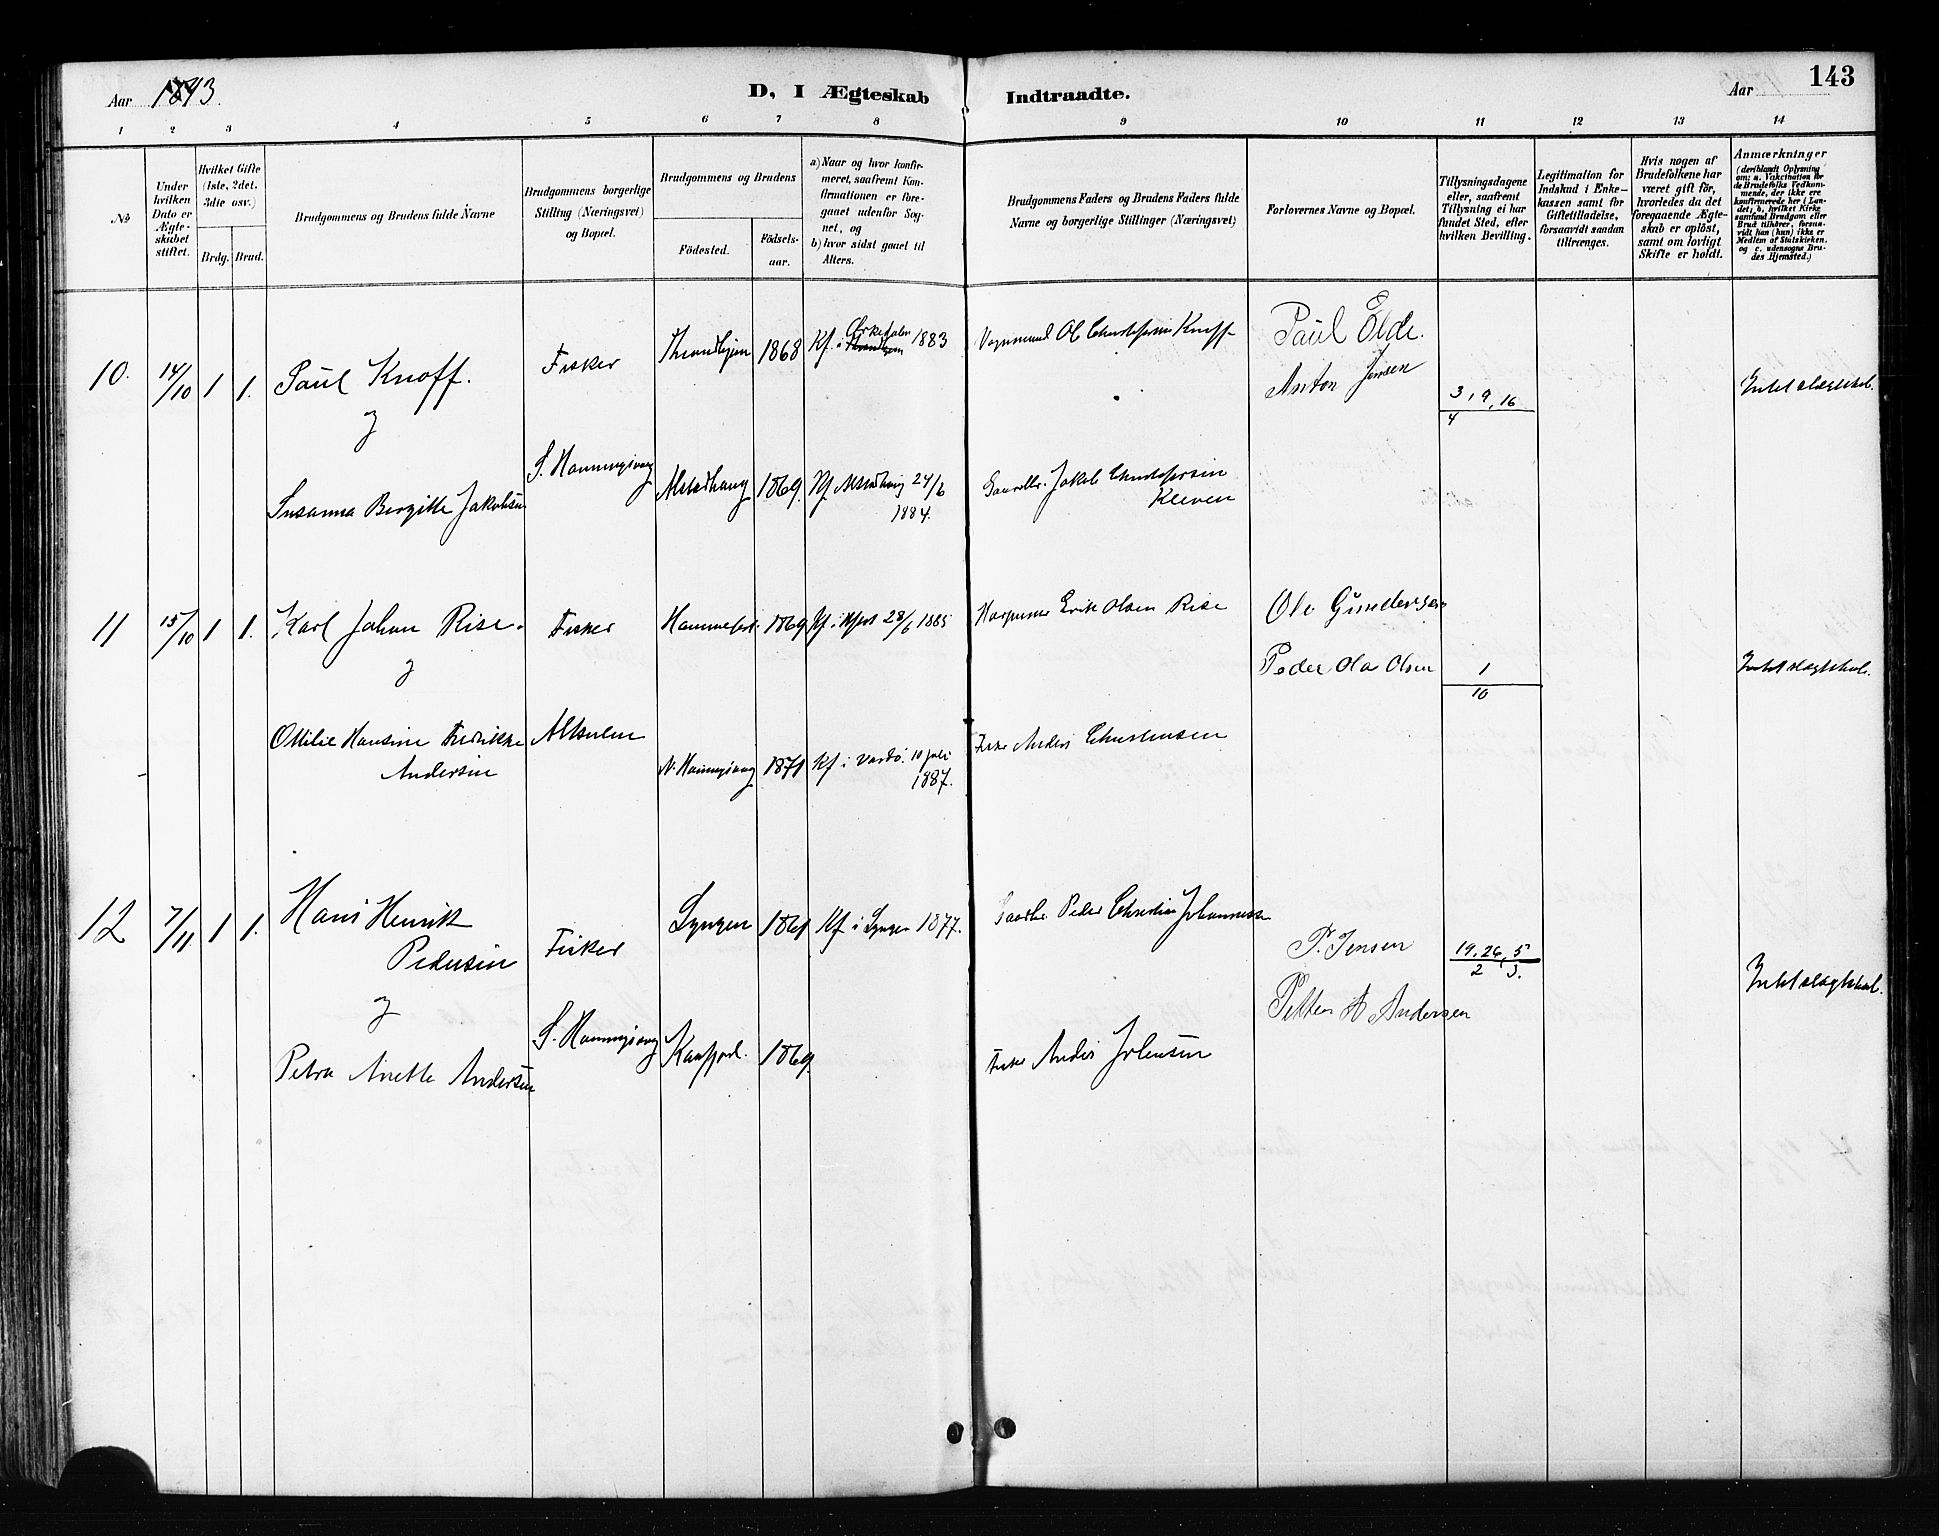 Aar 1893.
D, I Ægteskab Indtraadte.
Aar
143
1 2 3 4 5 6 7 8 9 10 11 12 13 14
№
Under hvilken Dato er Ægteskabet stiftet.
Hvilket Gifte (1ste, 2det, 3die osv.)
Brdg. Brud.
Brudgommens og Brudens fulde Navne
Brudgommens borgerlige Stilling (Næringsvei) og Bopæl.
Brudgommens og Brudens
Födested.
Födselsaar.
a) Naar og hvor konfirmeret, saafremt Konfirmationen er foregaaet udenfor Sognet, og
b) hvor sidst gaaet til Alters.
Brudgommens Faders og Brudens Faders fulde Navne og borgerlige Stillinger (Næringsvei)
Forlovernes Navne og Bopæl.
Tillysningsdagene eller, saafremt Tillysning ei har fundet Sted, efter hvilken Bevilling.
Legitimation for Indskud i Enkekassen samt for Giftetilladelse, forsaavidt saadan tiltrænges.
Hvis nogen af Brudefolkene har været gift för, hvorledes da det foregaaende Ægteskab er oplöst, samt om lovligt Skifte er holdt.
Anmærkninger
(deriblandt Oplysning om: a. Vakcination for de Brudefolks Vedkommende, der ikke ere konfirmerede her i Landet; b. hvilket Kirkesamfund Brudgom eller Brud tilhører, forsaavidt han (hun) ikke er Medlem af Statskirken, og c. udensogns Brudes Hjemsted.)
10. 14/10 1 1. Paul Knoff.
og
Susanna Bergitte Jakobsen
Fisker
S. Honningsvaag
Throndhjem 1868 Kf. i 1883
Alstadhaug 1869. Kf Alstadhaug 24/6 1884.
Ol Christofersen Knoff
Jakob Christofersen Kleven
Paul Elde.
Anton Jensen
3, 9, 16
4
Intet slægtskab.
11 15/10 1 1. Karl Johan Rise.
og
Ottilie Hansine Fredrikke Andersen
Fisker
Hammerfest. 1869 Kf. i 28/6 1885
N. Honningsvaag 1871 Kf. i Vardö. 10 juli 1887.
Erik Olsen Rise
Anders Christensen
Ole Gundersen
Peder Ola Olsen
1
10
Intet slægtskab.
12 7/11 1 1. Hans Henrik Pedersen
og
Petra Anette Andersen
Fisker
S. Honningsvaag
Lyngen 1861 Kf. i Lyngen 1877.
Kaafjord. 1869.
Peder Christian Johannessen
Anders Johensen
P. Jensen
Petter A Andersen
19, 26, 5
2 3.
Intet slægtskab.